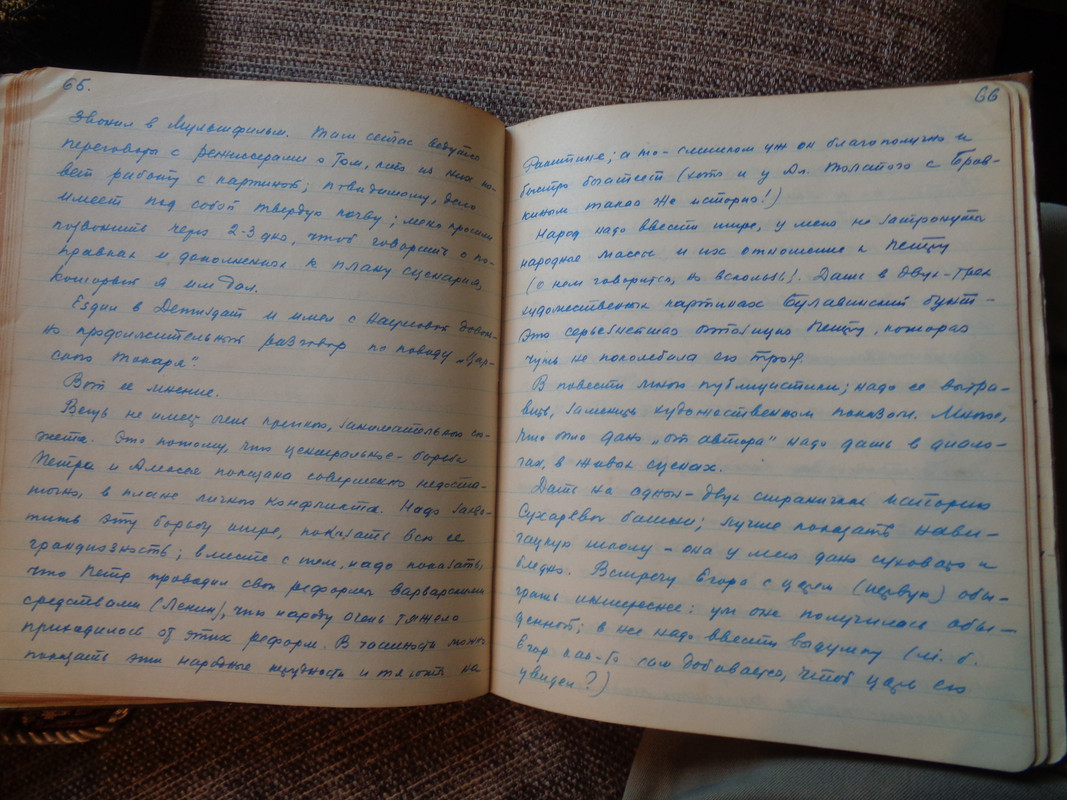 65.
Звонил в Мультфильм. Там сейчас ведутся
переговоры с режиссерами о том, кто из них на-
чнет работу с картиной; повидимому, дело
имеет под собой твердую почву; меня просили
позвонить через 2-3 дня, чтоб говорить о по-
правках и дополнениях к плану сценария,
который я им дал.
Ездил в Детиздат и имел с Наумовой доволь-
но продолжительный разговор по поводу „Цар-
ского токаря".
Вот ее мнение.
Вещь не имеет очень прочного, занимательного сю-
жета. Это потому, что центральное - борьба
Петра и Алексея показана совершенно недоста-
точно, в плане личного конфликта. Надо заме-
тить эту борьбу шире, показать всю ее
грандиозность; вместе с тем, надо показать,
что Петр проводил свои реформы варварскими
средствами (Ленин), что народу очень тяжело
приходилось от этих реформ. В частности можно
показать эти народные трудности и тяготы на
66
Ракитине; а то - слишком уж он благополучно и
быстро богатеет (хотя и у Ал. Толстого с Бров-
киным такая же история!)
Народ надо ввести шире, у меня не затронуты
народные массы и их отношение к Петру
(о нем говорится, но вскользь). Даже в двух-трех
художественных картинах Булавинский бунт -
это серьезнейшая оппозиция Петру, которая
чуть не поколебала его трон.
В повести много публицистики; надо ее вытра-
вить, заменить художественным показом. Многое,
что было дано „от автора" надо дать в диало-
гах, в живых сценах.
Дать на одной-двух страничках историю
Сухаревой башни; лучше показать нави-
гацкую школу - она у меня дана суховато и
бледно. Встречу Егора с царем (первую) обы-
грать интереснее: уж она получилась обы-
денной; в нее надо ввести выдумку (м. б.
Егор как-то сам добивается, чтоб царь его
увидел?)